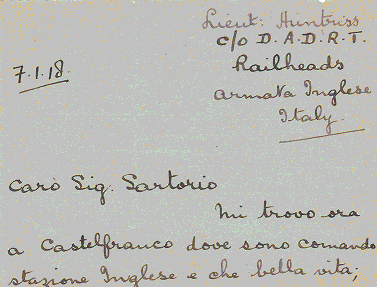 Lieut: Huntriss
c/o D.A.D.R.T.
7.1.18. Railheads
Armata Inglese
Italy.
Caro Sig. Sartorio
Mi trovo ora
a Castelfranco dove sono comando
stazione Inglese e che bella vita;